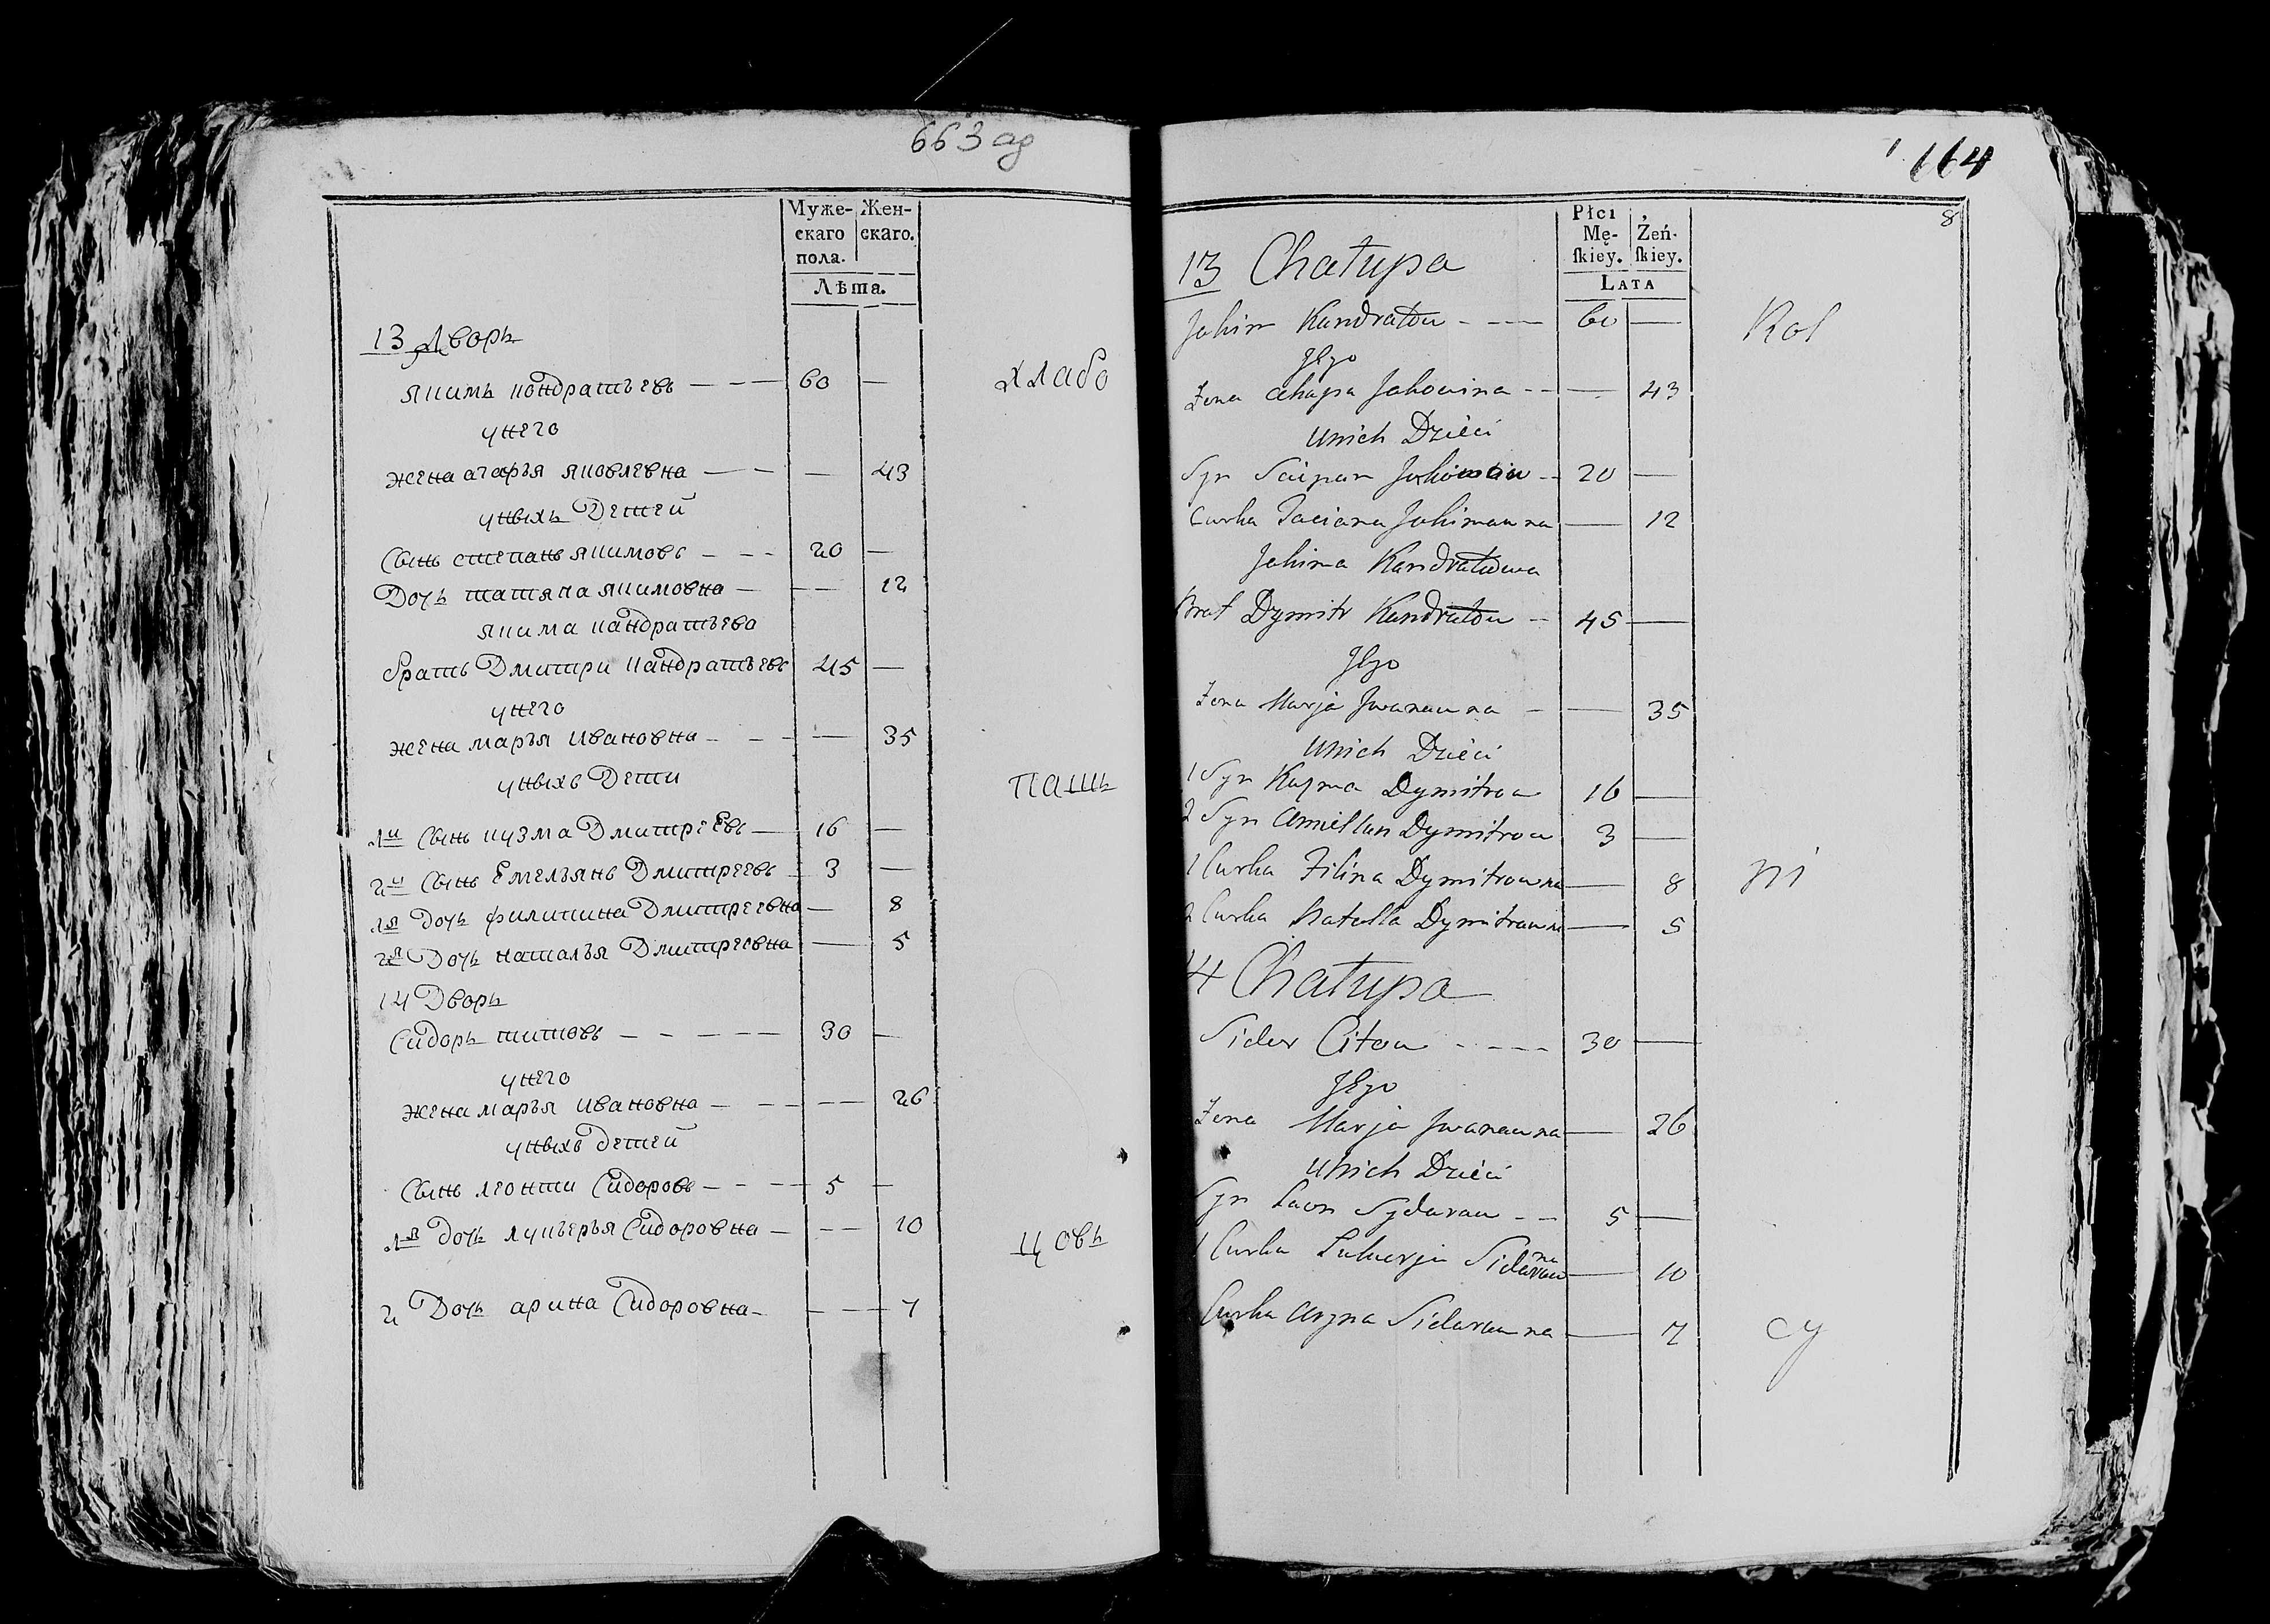 663 ад
Муже- Жен-
скаго скаго.
пола.
Лѣта.
13 Дворъ
якимъ кондратьевъ 60 —
унего
жена агафья яковлевна — 43
уныхъ Детей
Сынъ степанъ якимовъ 20 —
Дочь татяна якимовна — 12
якима кандратьева
братъ Дмитри кандратьевъ 45 —
унего
жена марья ивановна — 35
уныхъ Дети
1й Сынъ кузма Дмитреевъ 16 —
2й Сынъ Емельянъ Дмитреевъ 3 —
1я дочь филипина Дмитреевна — 8
2я Дочь наталья Дмитреевна — 5
14 Дворъ
Сидоръ титовъ 30 —
унего
жена марья ивановна — 26
уныхъ детей
Сынъ леонти Сидоровъ 5 —
1я дочь лукерья Сидоровна — 10
2 Дочь арина Сидоровна — 7
хлабо
паш
цовъ
664
8
Płci
Mę- Żeń-
ſkiey. ſkiey.
LATA
13 Chałupa
Johim Kandratou 60 —
Jego
Żona Ahapa Jakowina — 43
unich Dzieci
Syn Sciepan Johimou 20 —
Curka Taciana Johimauna — 12
Johima Kandratowa
Brat Dymitr Kandratou 45 —
Jego
Żona Marja Iwanauna — 35
unich Dzieci
1 Syn Kuzma Dymitrou 16 —
2 Syn Amiellan Dymitrou 3 —
1 Curka Filina Dymitrowna — 8
2 Curka Natalla Dymitrauna — 5
14 Chałupa
Sidor Citou 30 —
Jego
Żona Marja Iwanauna — 26
unich Dzieci
Syn Lawon Sydarau 5 —
1 Curka Lukierja Sidarauna — 10
Curka Aryna Sidarauna — 7
Rol
ni
cy